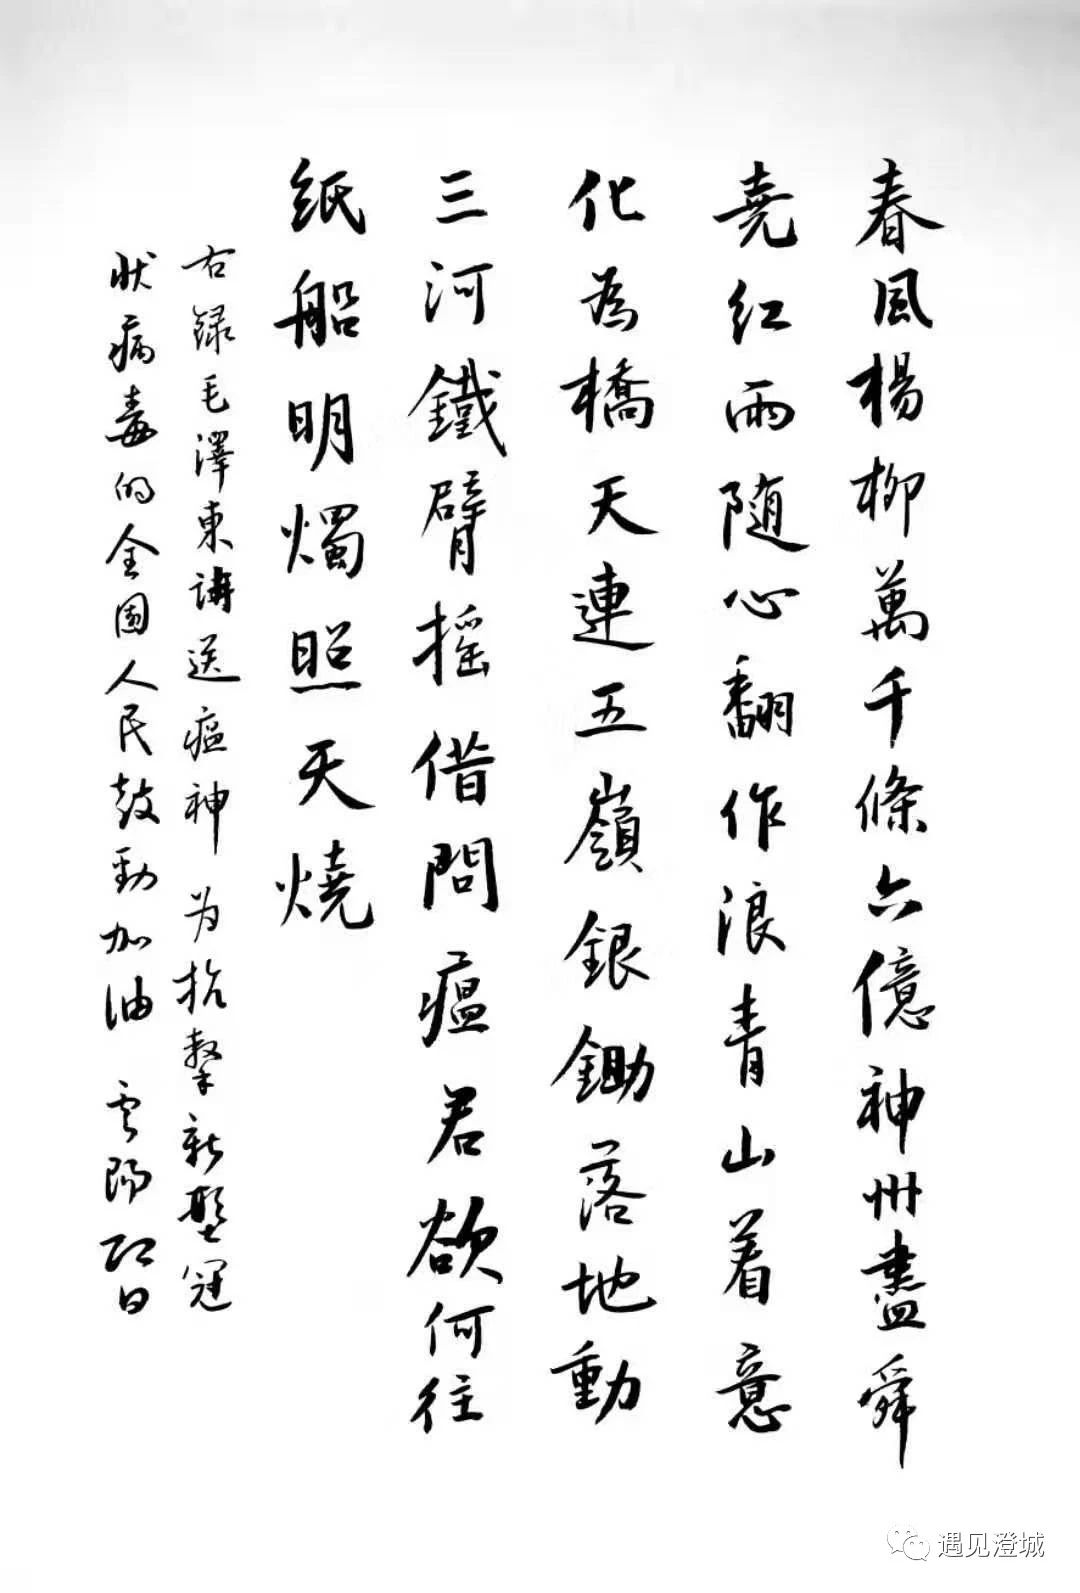 春風楊柳萬千條六億神州盡舜
堯紅雨随心翻作浪青山着意
化為橋天連五嶺銀鋤落地動
三河鐵臂摇借問瘟君欲何往
紙船明燭照天燒
右録毛澤東詩送瘟神为抗擊新型冠
狀病毒的全國人民鼓勁加油
遇见澄城